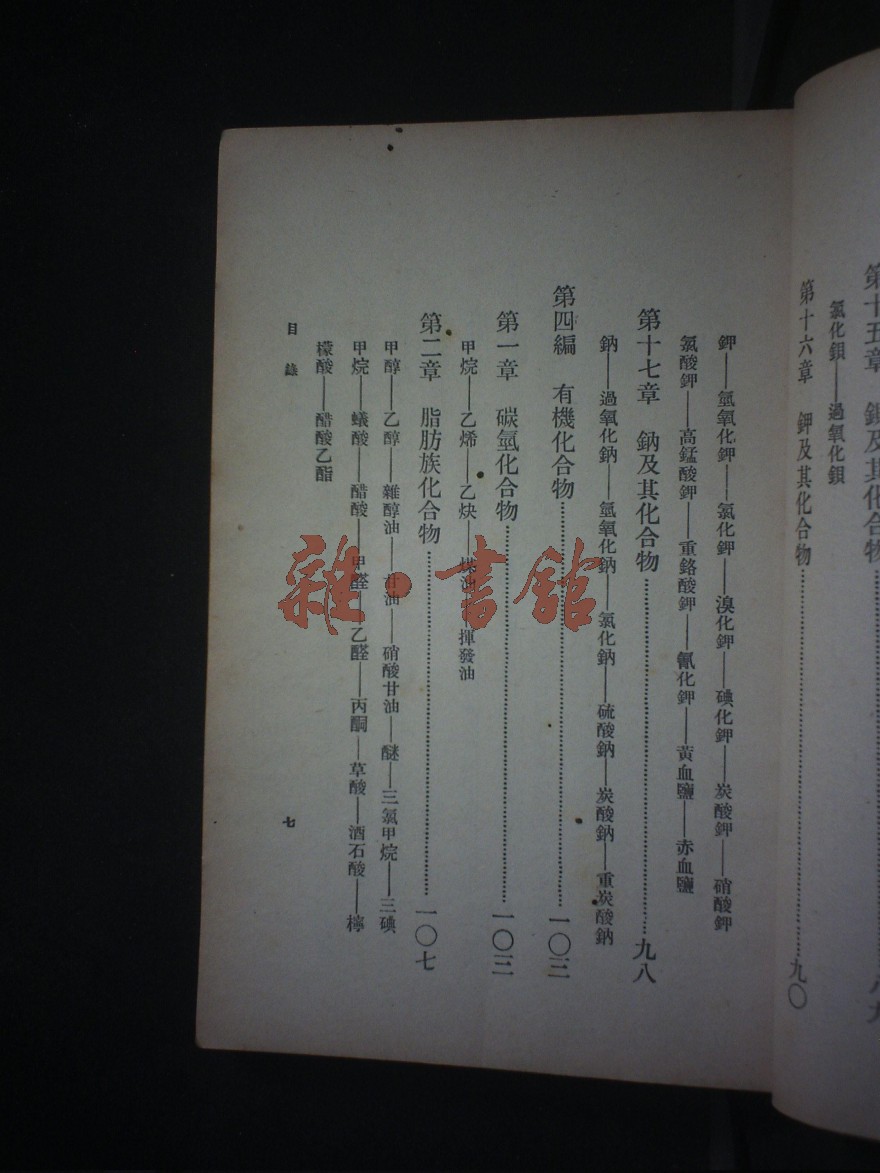 第十五章　鋇及其化合物……八九
氯化鋇——過氧化鋇
第十六章　鉀及其化合物……九〇
鉀——氫氧化鉀——氯化鉀——溴化鉀——碘化鉀——炭酸鉀——硝酸鉀
氯酸鉀——高錳酸鉀——重鉻酸鉀——氰化鉀——黃血鹽——赤血鹽
第十七章　鈉及其化合物……九八
鈉——過氧化鈉——氫氧化鈉——氯化鈉——硫酸鈉——炭酸鈉——重炭酸鈉
第四編　有機化合物……一〇三
第一章　碳氫化合物……一〇三
甲烷——乙烯——乙炔——煤油——揮發油
第二章　脂肪族化合物……一〇七
甲醇——乙醇——雜醇油——甘油——硝酸甘油——醚——三氯甲烷——三碘
甲烷——蟻酸——醋酸——甲醛——乙醛——丙酮——草酸——酒石酸——檸
檬酸——醋酸乙酯
目錄
七
雜·書館